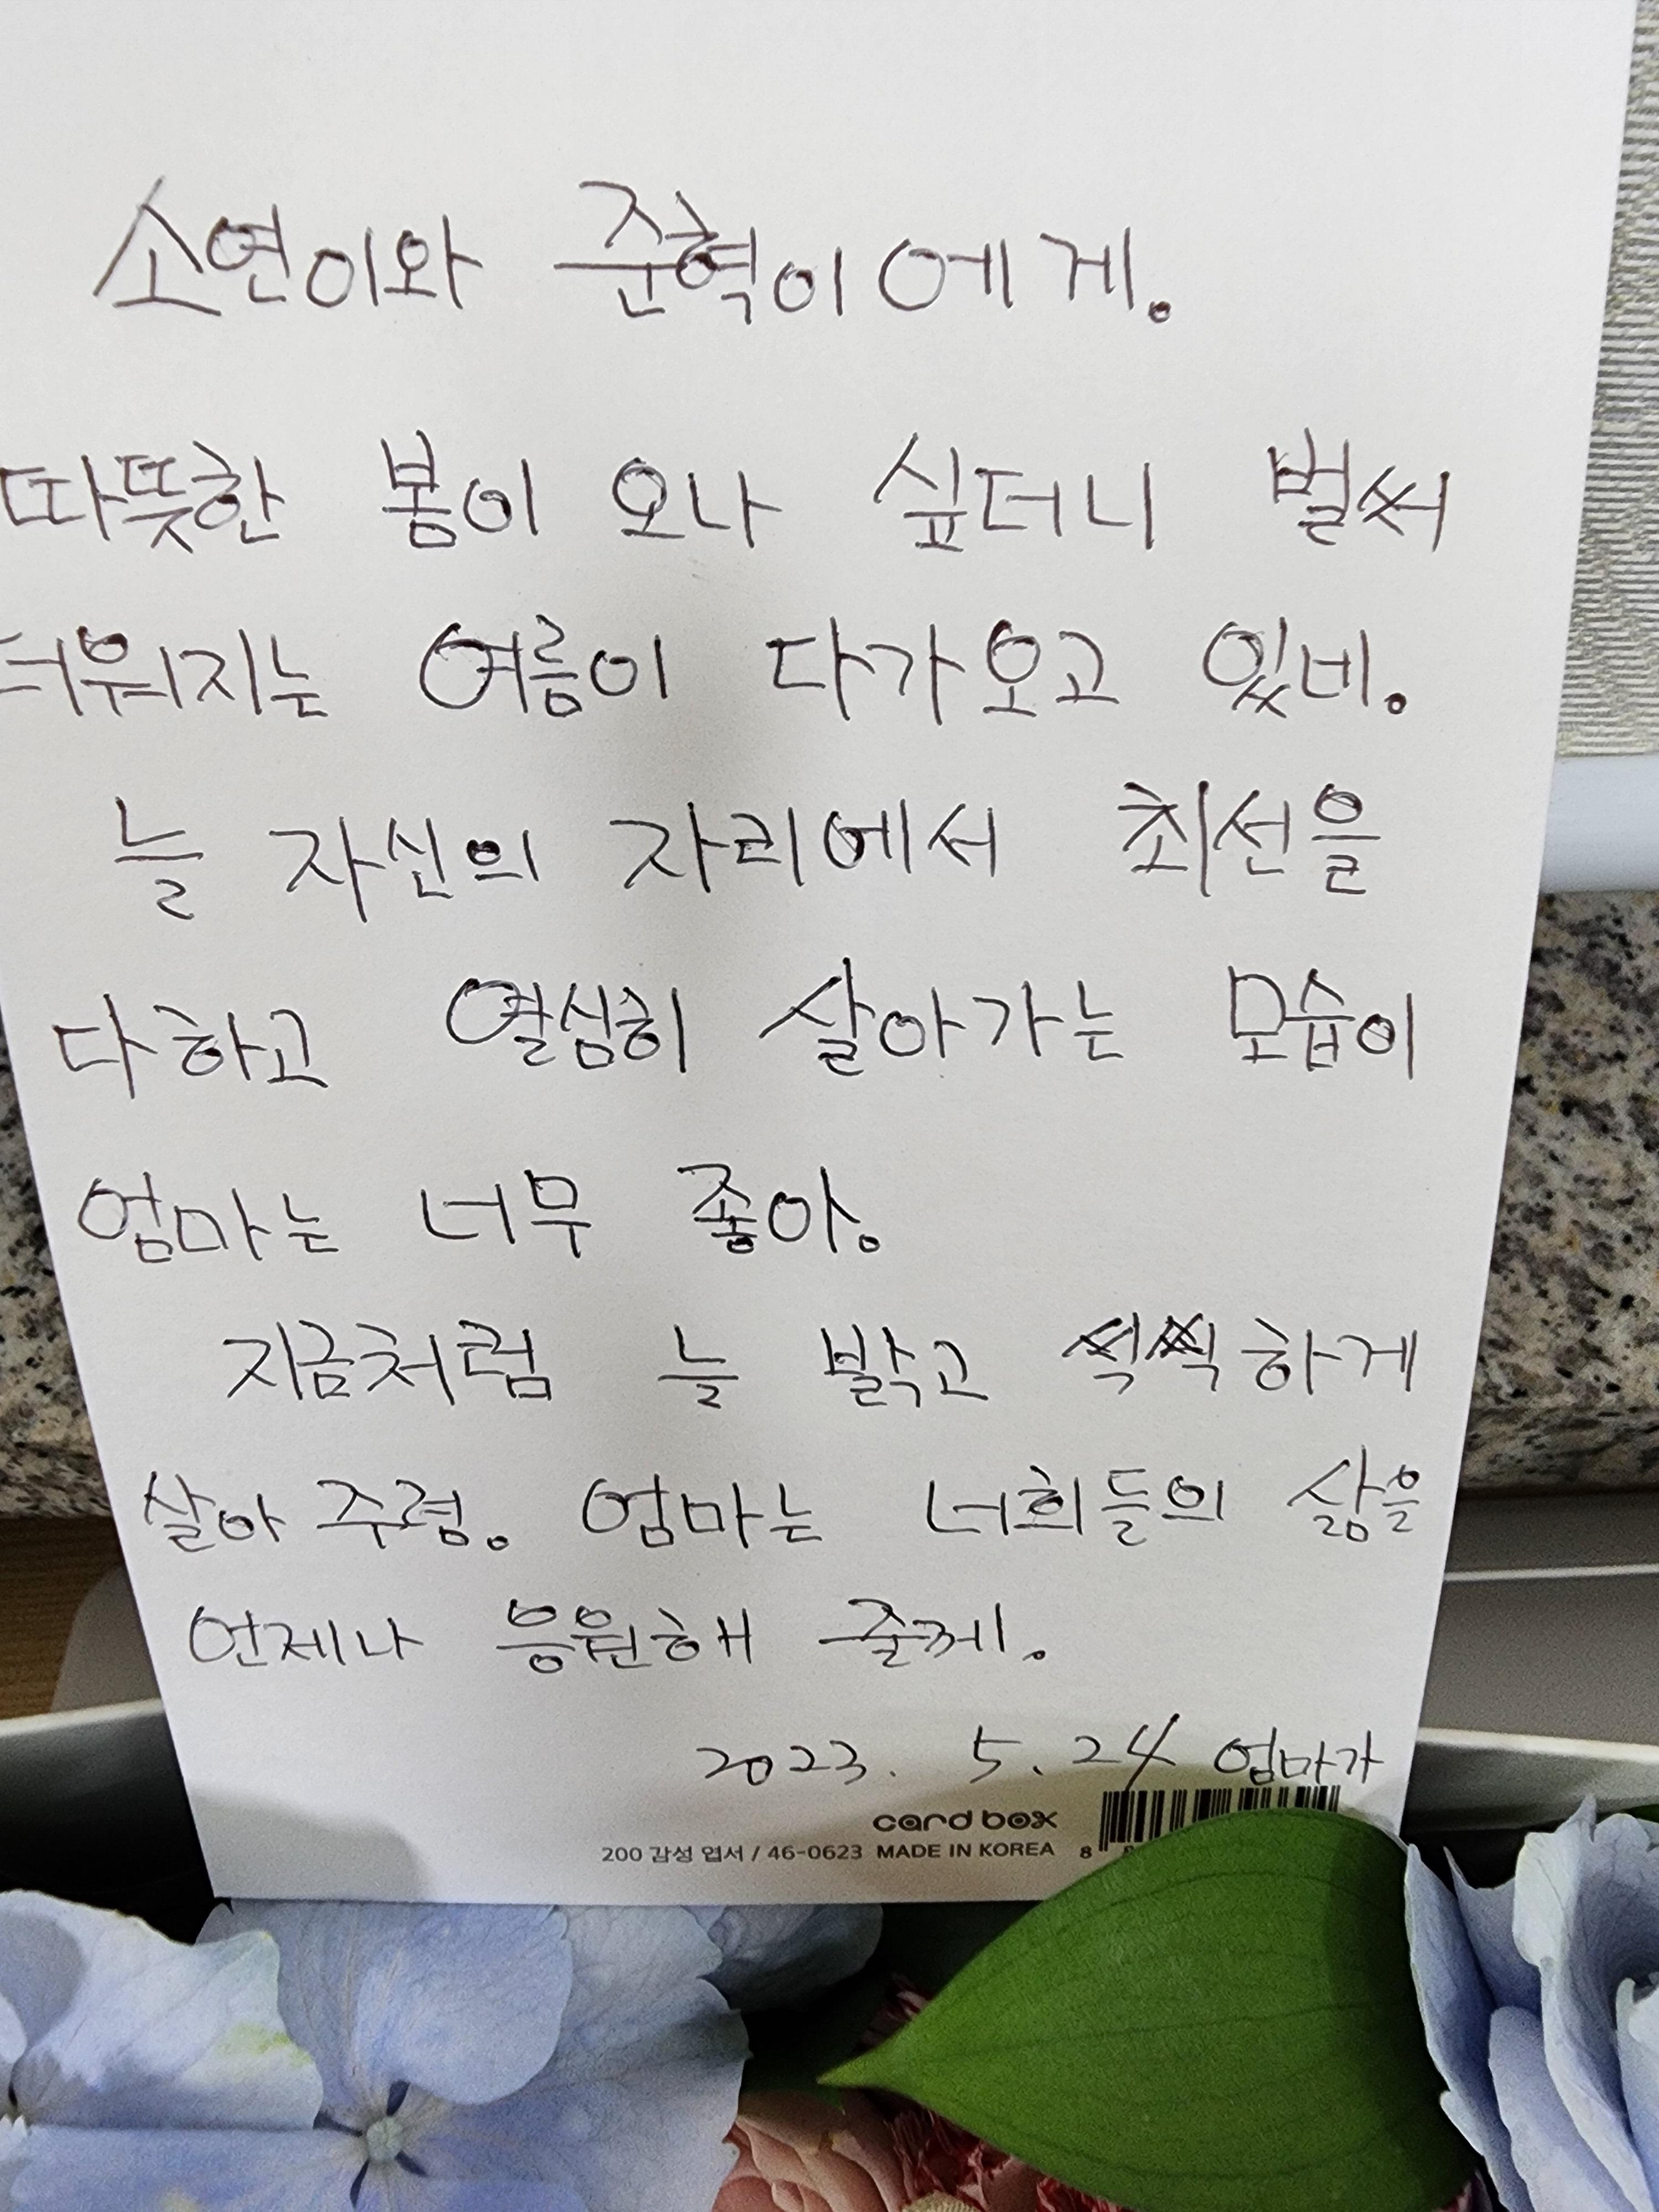 소연이와 준혁이에게.
따뜻한 봄이 오나 싶더니 벌써
더워지는 여름이 다가오고 있네.
늘 자신의 자리에서 최선을
다하고 열심히 살아가는 모습이
엄마는 너무 좋아.
지금처럼 늘 밝고 씩씩하게
살아 주렴. 엄마는 너희들의 삶을
언제나 응원해 줄께.
2023. 5. 24 엄마가
card box
200 감성 엽서 / 46-0623 MADE IN KOREA 8